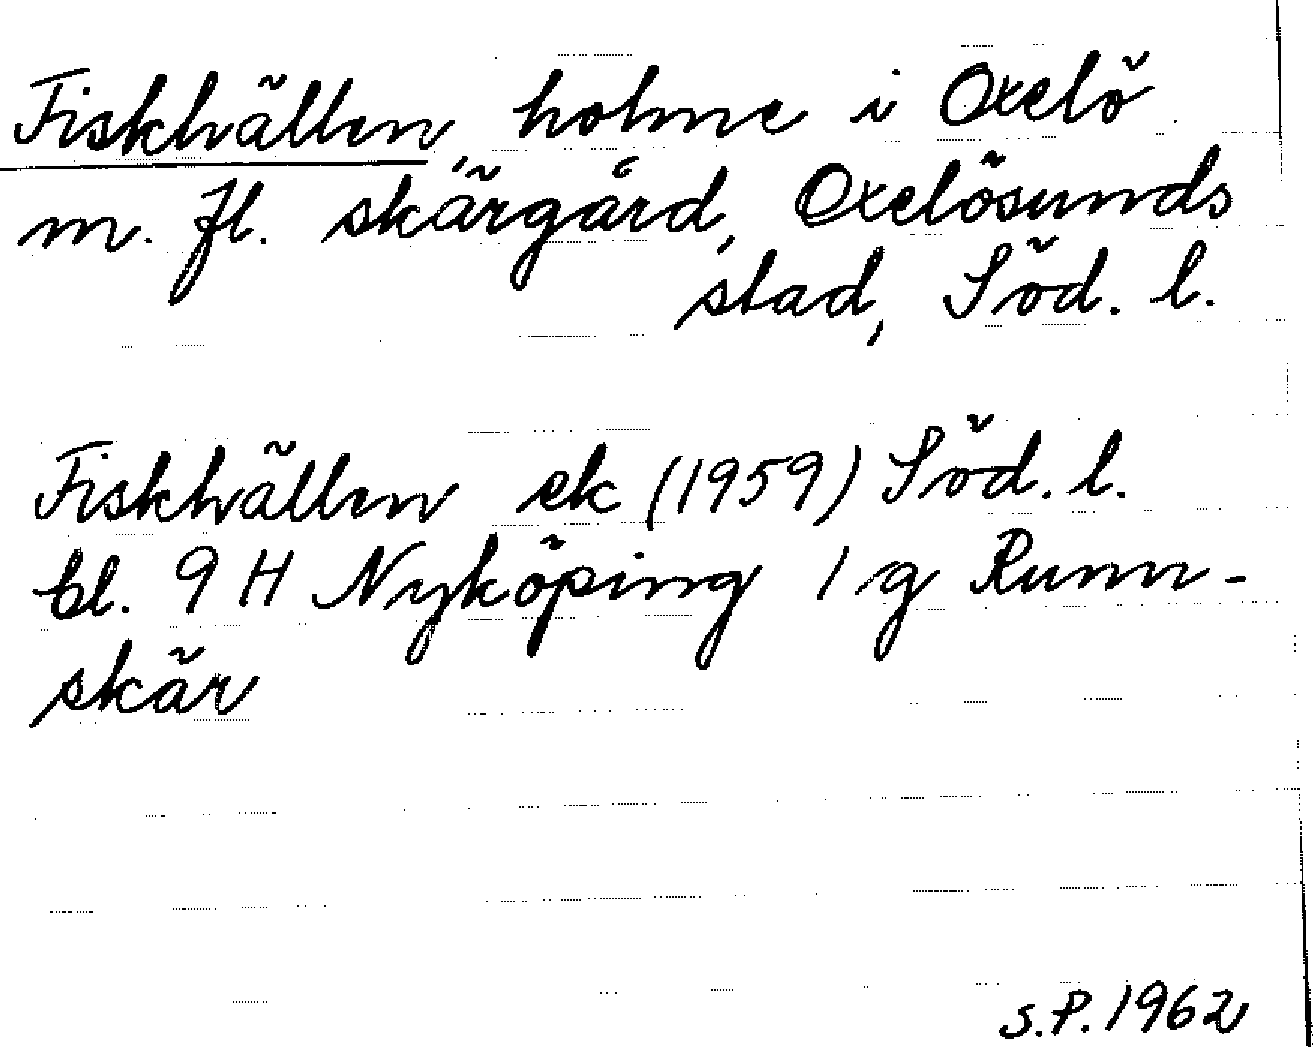 Fiskhällen, holme i Oxelö
m. fl. skärgård, Oxelösunds
stad, Söd. l.
Fiskhällen ek (1959) Söd. l.
bl. 9 H Nyköping 1 g Runn-
skär
S.P. 1962